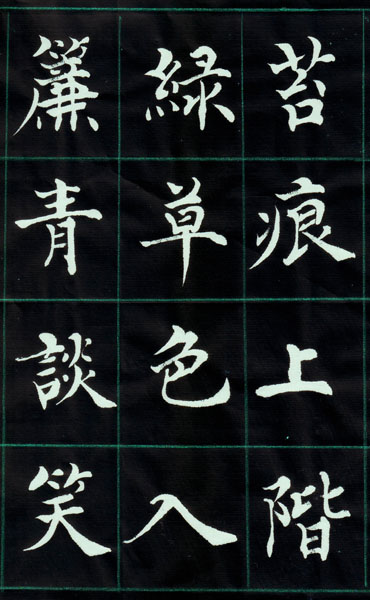 苔痕上階
綠草色入
簾青談笑